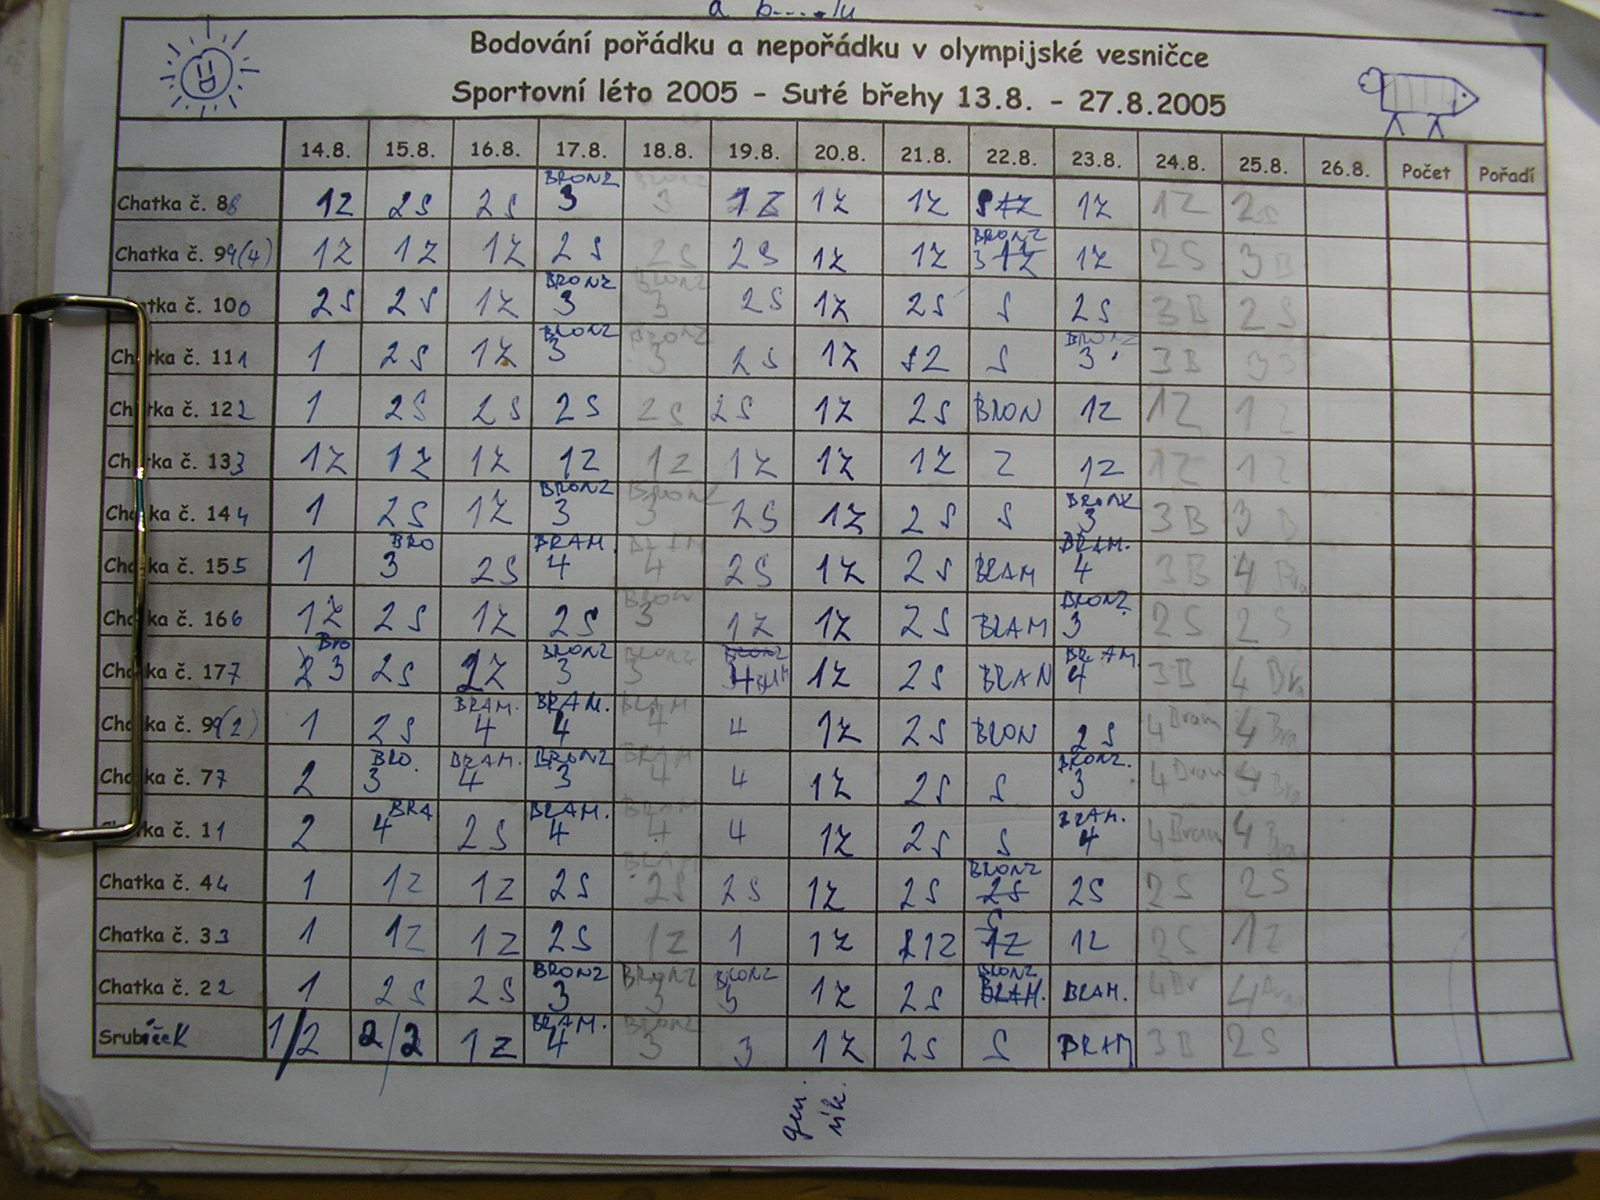 Bodování pořádku a nepořádku v olympijské vesničce
Sportovní léto 2005 - Suté břehy 13.8. - 27.8.2005
14.8. 15.8. 16.8. 17.8. 18.8. 19.8. 20.8. 21.8. 22.8. 23.8. 24.8. 25.8. 26.8. Počet Pořadí
Chatka č. 88 1Z 2S 2S BRONZ 3 BRONZ 3 1Z 1Z 1Z S 1Z 1Z 2S
Chatka č. 99(4) 1Z 1Z 1Z 2S 2S 2S 1Z 1Z BRONZ 3 1Z 1Z 2S 3B
Chatka č. 100 2S 2S 1Z BRONZ 3 BRONZ 3 2S 1Z 2S S 2S 3B 2S
Chatka č. 111 1 2S 1Z BRONZ 3 BRONZ 3 2S 1Z S BRONZ 3 3B
Chatka č. 122 1 2S 2S 2S 2S 2S 1Z 2S BRON 1Z 1Z 1Z
Chatka č. 133 1Z 1Z 1Z 1Z 1Z 1Z 1Z 1Z Z 1Z 1Z 1Z
Chatka č. 144 1 2S 1Z BRONZ 3 BRONZ 3 2S 1Z 2S S BRONZ 3 3B 3B
Chatka č. 155 1 BRO 3 2S BRAM. 4 BRAM 4 2S 1Z 2S BRAM BRAM. 4 3B 4 Bra
Chatka č. 166 1Z 2S 1Z 2S BRON 3 1Z 1Z 2S BRAM BRONZ 3 2S 2S
Chatka č. 177 2 3 Bro 2S 1Z BRONZ 3 BRONZ 3 BRONZ 4 BRAM 1Z 2S BRAN BRAM. 4 3B 4 Bra
Chatka č. 99(2) 1 2S BRAM. 4 BRAM. 4 BRAM 4 4 1Z 2S BRON 2S 4 Bram 4 Bra
Chatka č. 77 2 BRO. 3 BRAM. 4 BRONZ 3 BRAM 4 4 1Z 2S S BRONZ. 3 4 Bram 4 Bra
Chatka č. 11 2 4 BRA 2S BRAM. 4 BRAM 4 4 1Z 2S S BRAM. 4 4 Bram 4 Bra
Chatka č. 44 1 1Z 1Z 2S BRAM 2S 2S 1Z 2S BRONZ 2S 2S 2S 2S
Chatka č. 33 1 1Z 1Z 2S 1Z 1 1Z 1Z S 1Z 1Z 2S 1Z
Chatka č. 22 1 2S 2S BRONZ 3 BRONZ 3 BRONZ 3 1Z 2S BRONZ BRAM. BRAM. 4Br 4 Bram
Srubíček 1/2 2/2 1Z BRAM. 4 BRONZ 3 3 1Z 2S S BRAM 3B 2S